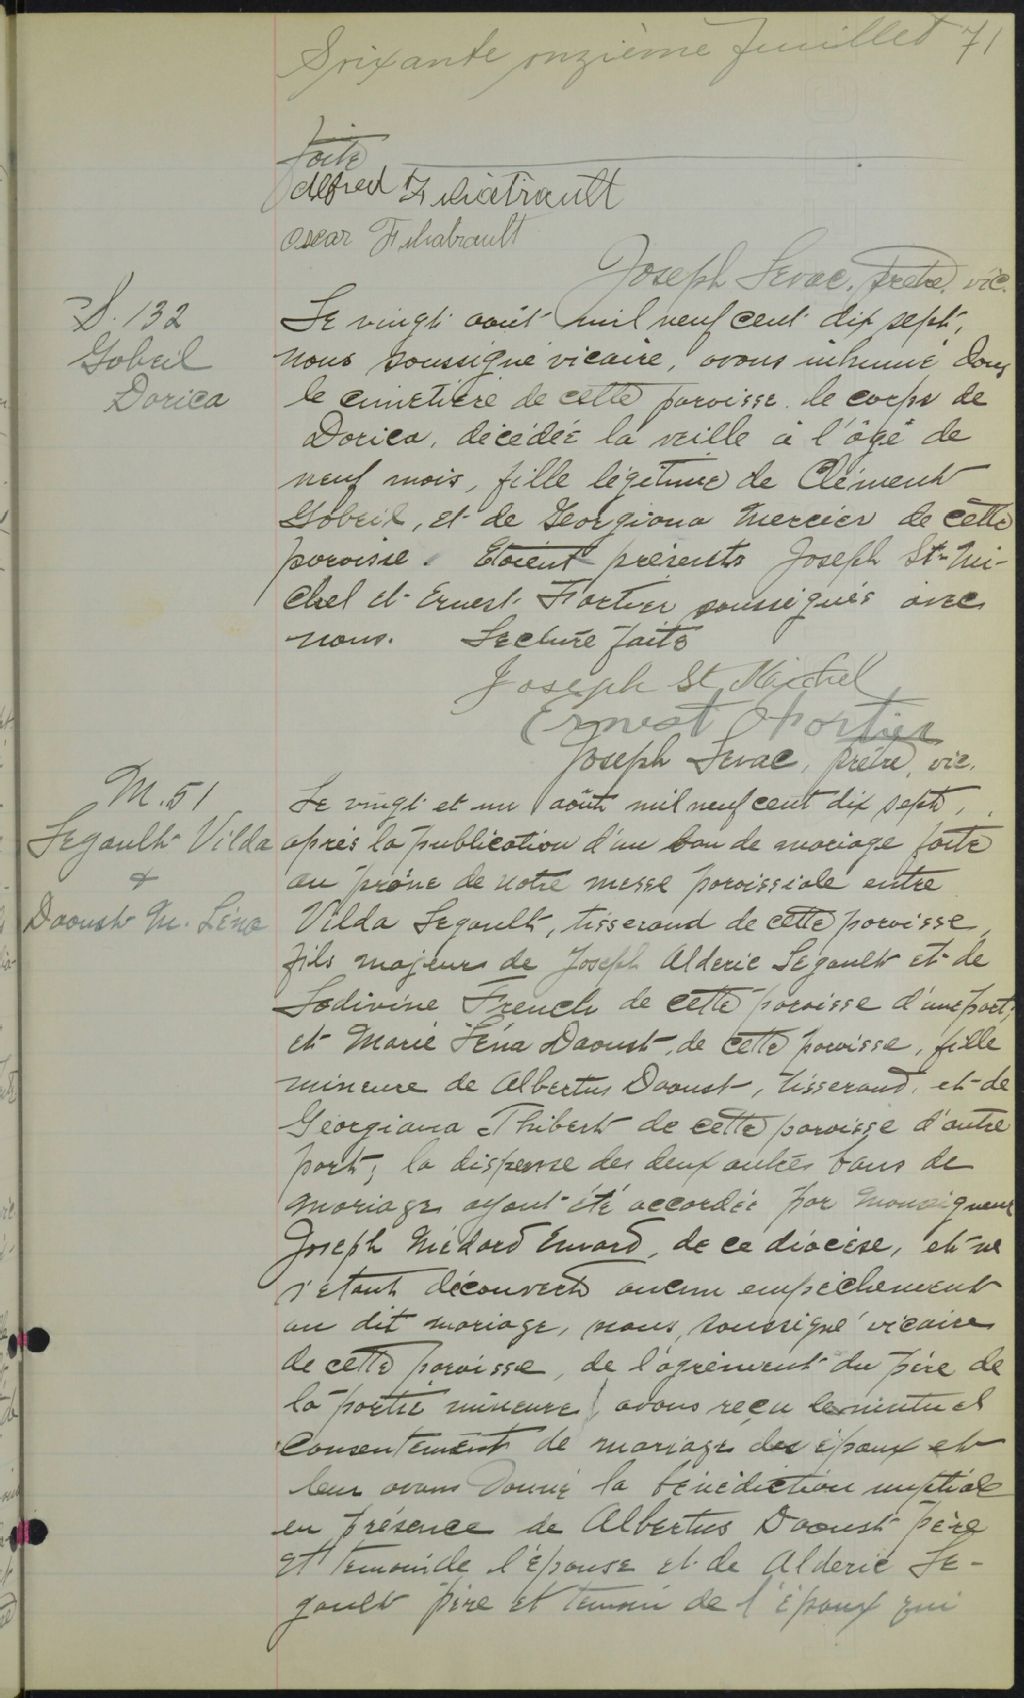 Soixante onzième feuillet 71
faite
Alfred Filiatrault
Oscar Filiatrault
Joseph Levac, prêtre, vic.
S. 132
Gobeil
Dorica
Le vingt août mil neuf cent dix sept,
nous soussigné vicaire, avons inhumé dans
le cimetière de cette paroisse le corps de
Dorica, décédée la veille à l'âge de
neuf mois, fille légitime de Clément
Gobeil, et de Georgiana Mercier de cette
paroisse. Etaient présents Joseph St-Mi-
chel et Ernest Fortier soussignés avec
nous. Lecture faite
Joseph St Michel
Ernest Fortier
Joseph Levac, prêtre, vic.
M. 51
Legault Vilda
&
Daoust M. Léna
Le vingt et un août mil neuf cent dix sept,
après la publication d'un ban de mariage faite
au prône de notre messe paroissiale entre
Vilda Legault, tisserand de cette paroisse,
fils majeur de Joseph Alderic Legault et de
Lodivine French de cette paroisse d'une part,
et Marie Léna Daoust, de cette paroisse, fille
mineure de Albertus Daoust, tisserand, et de
Georgiana Thibert de cette paroisse d'autre
part; la dispense des deux autres bans de
mariage ayant été accordée par Monseigneur
Joseph Médard Emard, de ce diocèse, et ne
s'étant découvert aucun empêchement
au dit mariage, nous, soussigné vicaire
de cette paroisse, de l'agrément du père de
la partie mineure, avons reçu le mutuel
consentement de mariage des époux et
leur avons donné la bénédiction nuptiale
en présence de Albertus Daoust père
et temoin de l'épouse et de Alderic Le-
gault père et temoin de l'époux qui